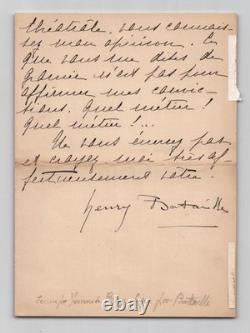 théâtrale, vous connais-
sez mon opinion. Ce
que vous me dites de
n'est pas pour
affirmer mes convic-
tions. Quel métier !
Quel métier !...
Ne vous énervez pas
et croyez moi très af-
fectueusement votre.
Henry Bataille
par Bataille
ebay